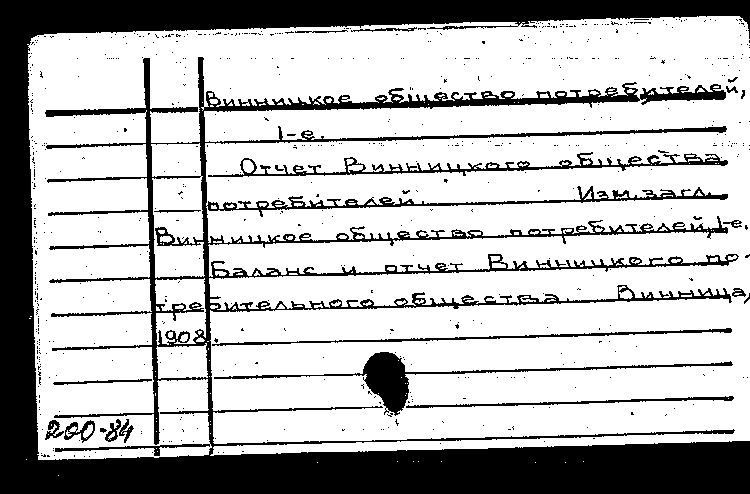 Винницкое общество потребителей,
1-е.
Отчет Винницкого общества
потребителей. Изм. загл.
Винницкое общество потребителей, 1-е.
Баланс и отчет Винницкого по-
требительного общества Винница,
1908.
200-84